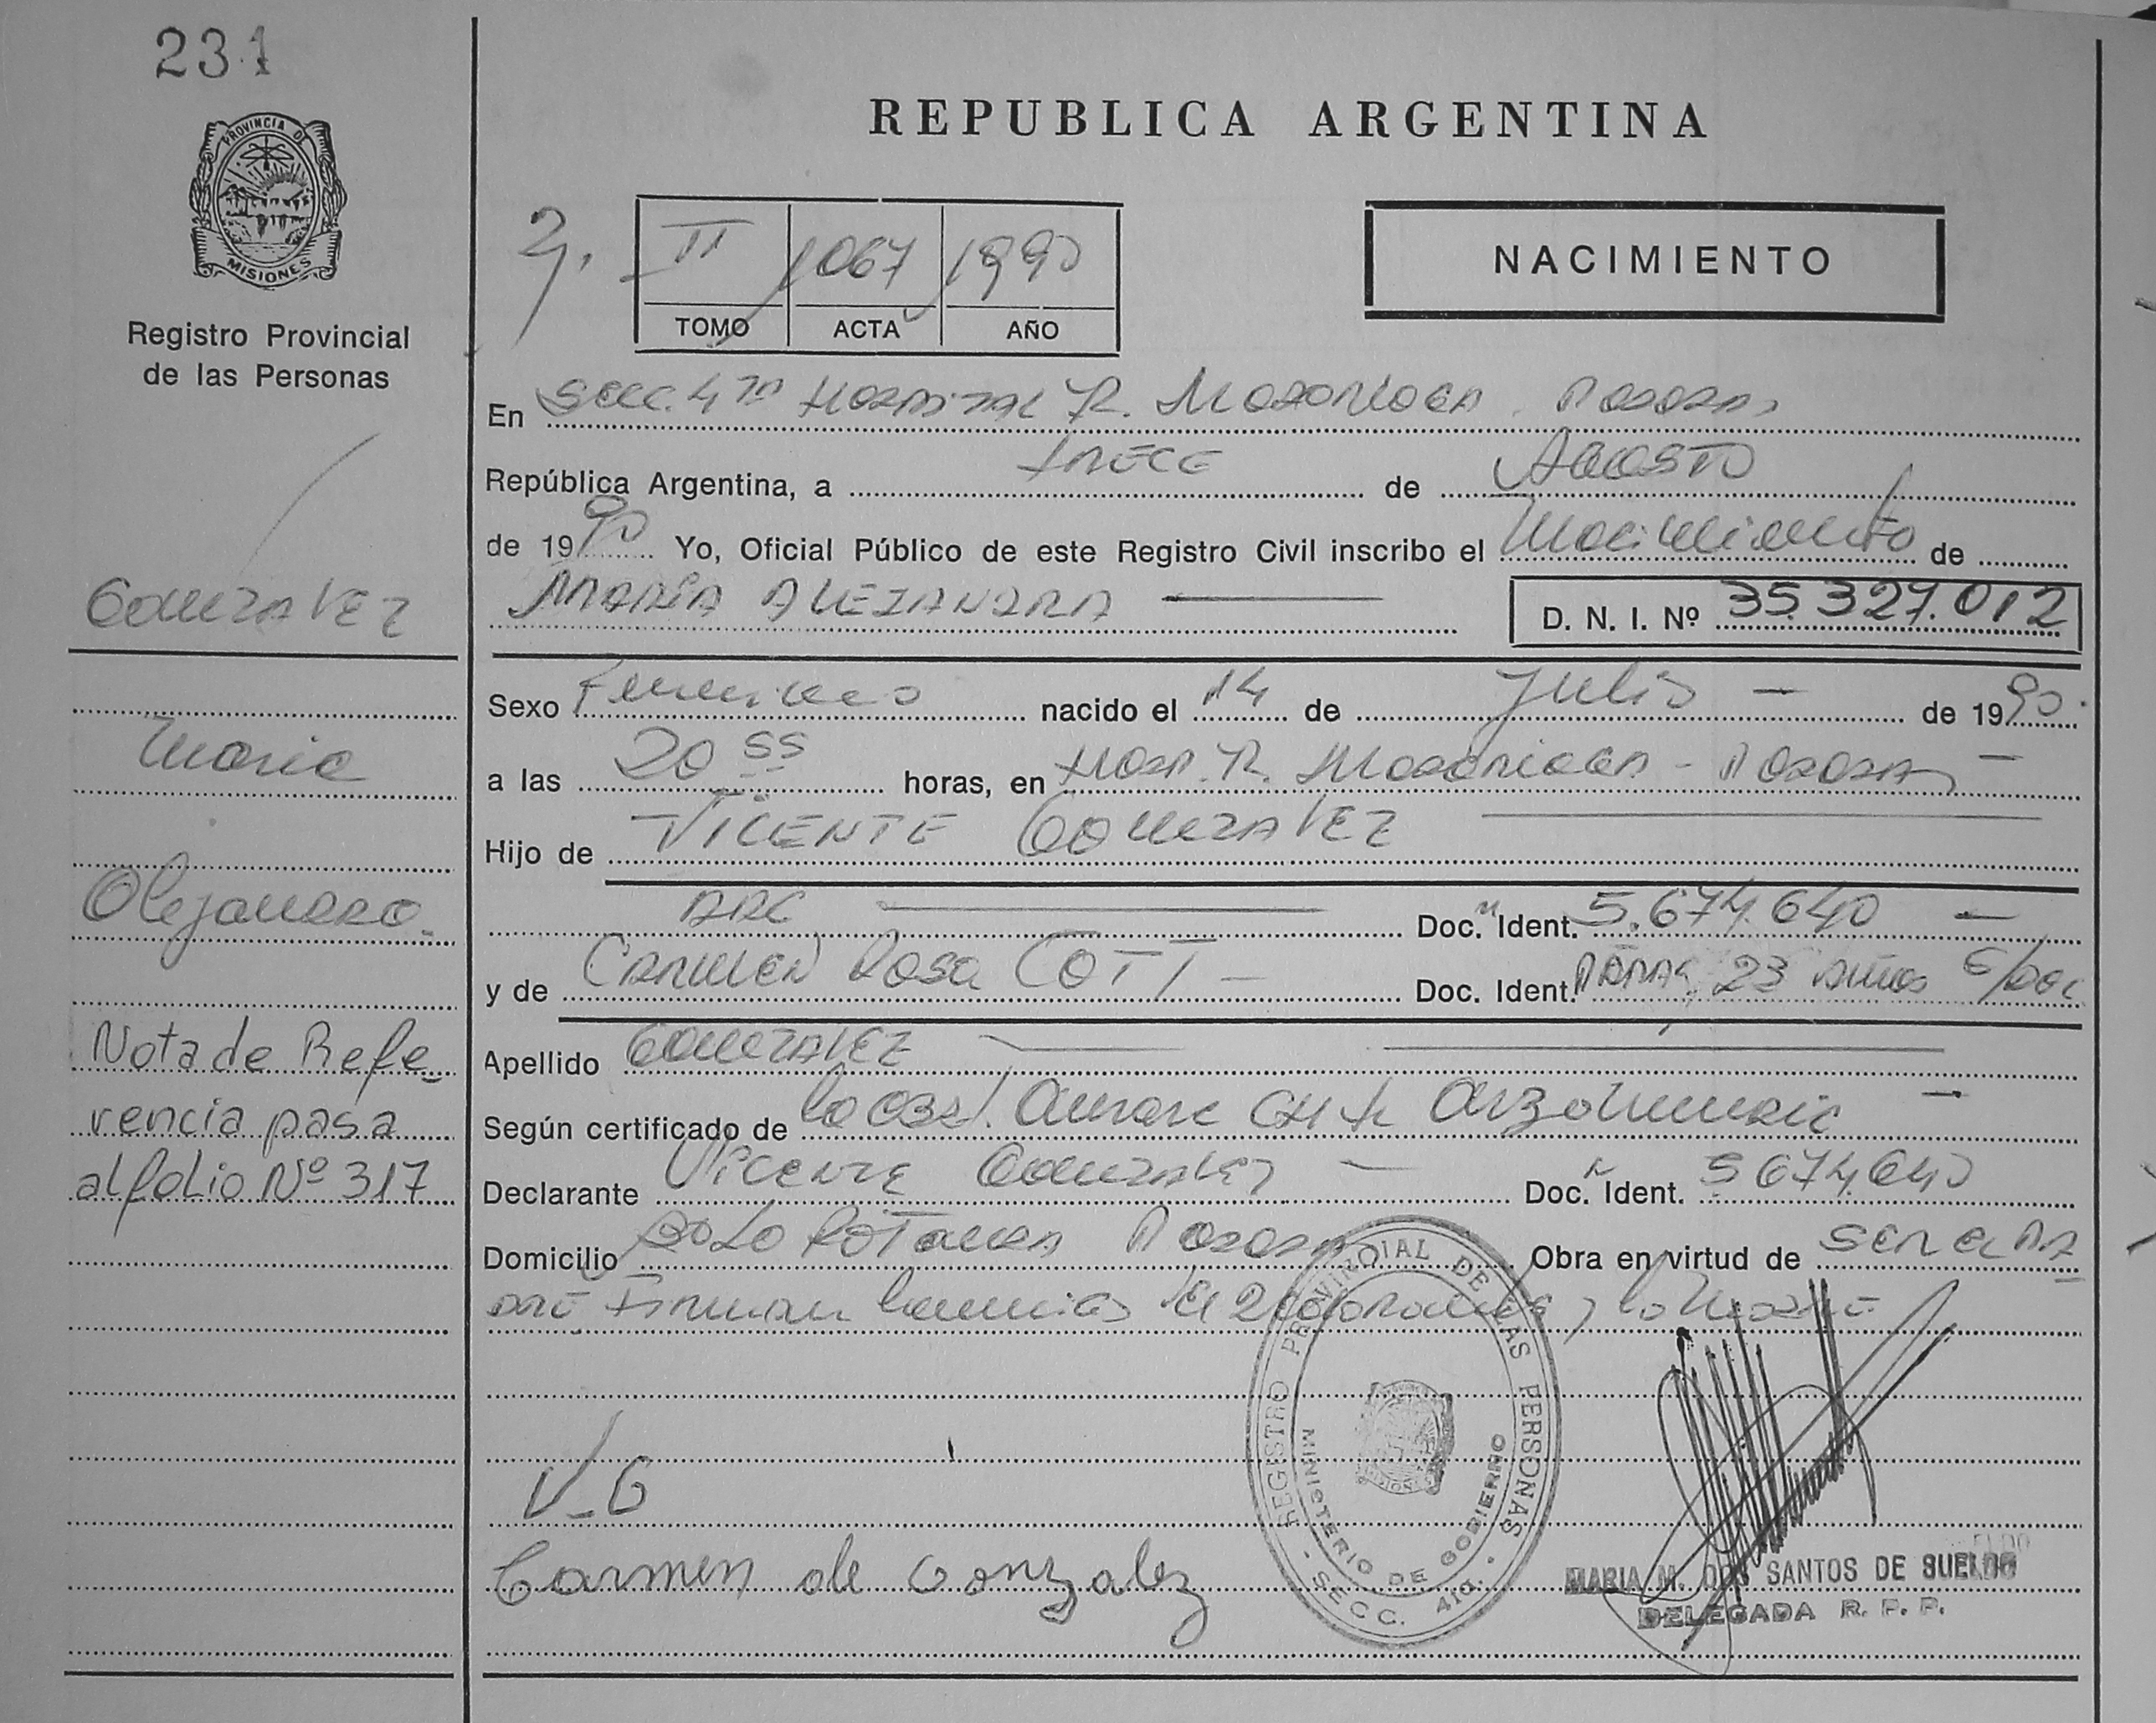 231
PROVINCIA DE
MISIONES
Registro Provincial
de las Personas
REPUBLICA ARGENTINA
II 1067 1990
TOMO ACTA AÑO
NACIMIENTO
En Secc. 4ta Hospital R. Madariaga Posadas
República Argentina, a trece de Agosto
de 1990 Yo, Oficial Público de este Registro Civil inscribo el Nacimiento de
MARÍA ALEJANDRA
D. N. I. Nº 35.327.012
Sexo Femenino nacido el 14 de Julio de 1990
a las 20 55 horas, en Hosp. R. Madariaga - Posadas
Hijo de VICENTE GONZALEZ
ARG Doc. Ident. 5.674.640
y de CARMEN Rosa COTT Doc. Ident. PARAG. 23 años S/Doc
Apellido GONZALEZ
Según certificado de la Obst. Aurora
Declarante VICENTE GONZALEZ Doc. Ident. 5674.640
Domicilio Posadas Obra en virtud de ser el
Firman el declarante y la madre
V_G
Carmen de Gonzalez
REGISTRO PROVINCIAL DE LAS PERSONAS
MINISTERIO DE GOBIERNO
- SECC. 4ta. -
MISIONES
MARIA M. DOS SANTOS DE SUELDO
DELEGADA R. P. P.
GONZALEZ
Maria
Alejandra
Nota de Refe-
rencia pasa
al folio Nº 317